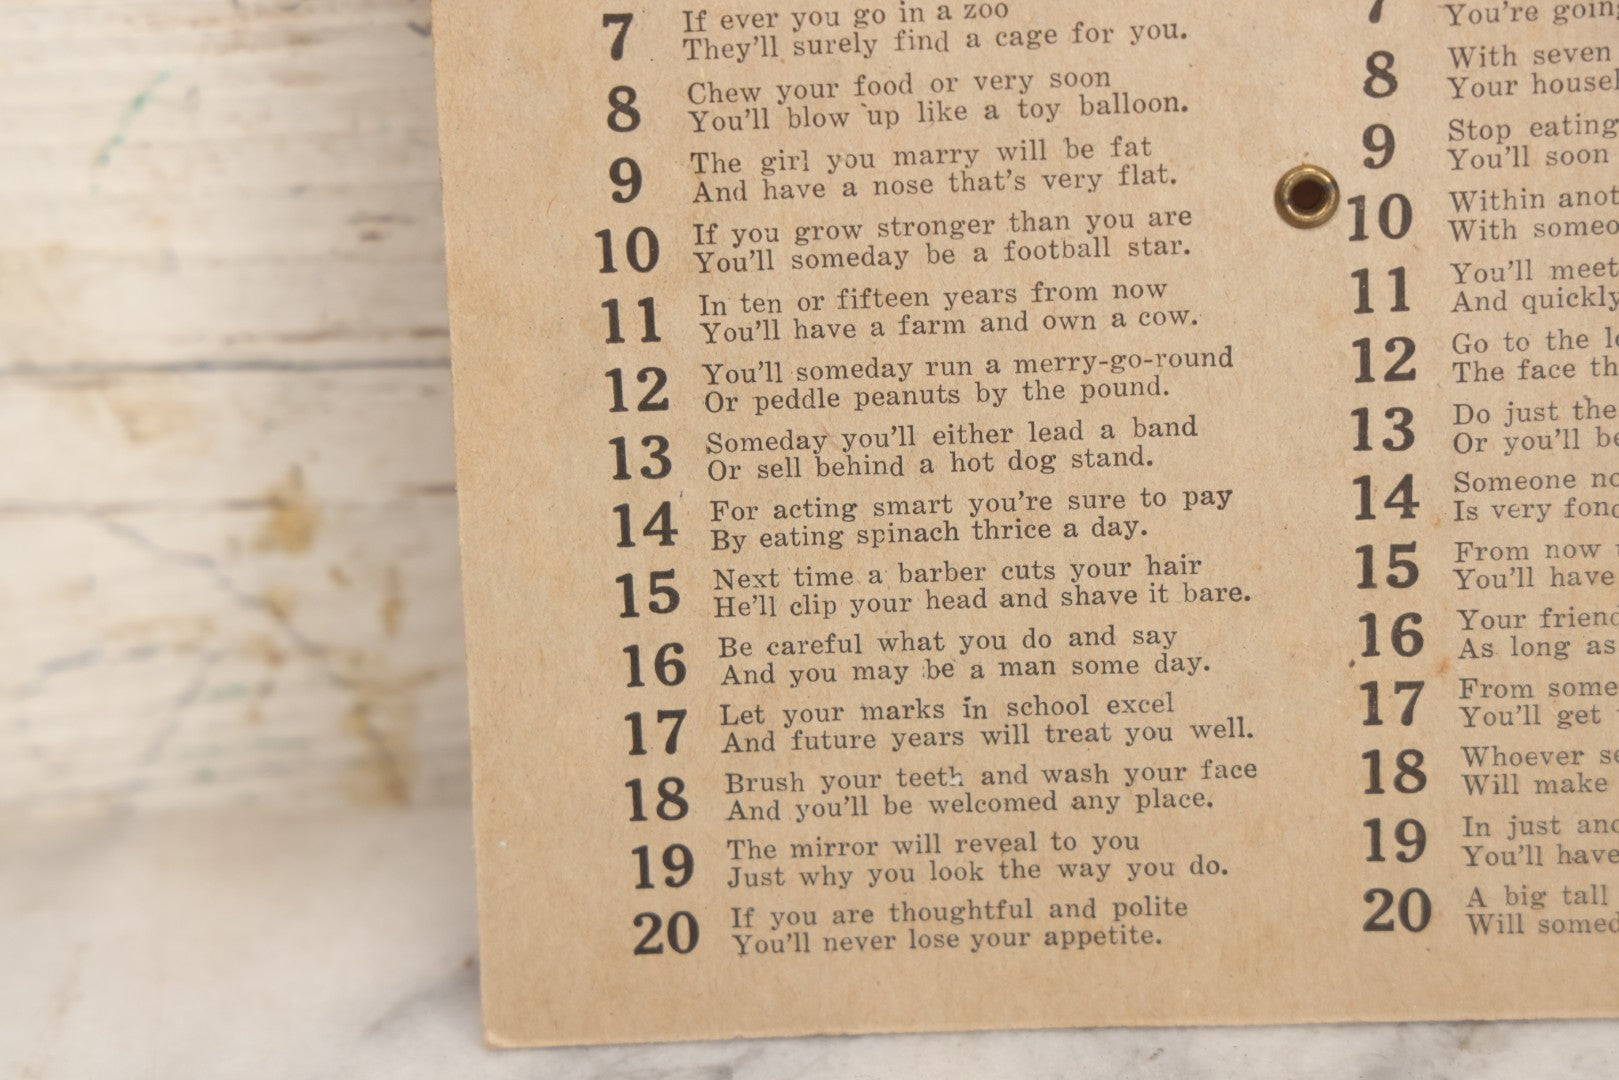 7 If ever you go in a zoo
They'll surely find a cage for you.
8 Chew your food or very soon
You'll blow up like a toy balloon.
9 The girl you marry will be fat
And have a nose that's very flat.
10 If you grow stronger than you are
You'll someday be a football star.
11 In ten or fifteen years from now
You'll have a farm and own a cow.
12 You'll someday run a merry-go-round
Or peddle peanuts by the pound.
13 Someday you'll either lead a band
Or sell behind a hot dog stand.
14 For acting smart you're sure to pay
By eating spinach thrice a day.
15 Next time a barber cuts your hair
He'll clip your head and shave it bare.
16 Be careful what you do and say
And you may be a man some day.
17 Let your marks in school excel
And future years will treat you well.
18 Brush your teeth and wash your face
And you'll be welcomed any place.
19 The mirror will reveal to you
Just why you look the way you do.
20 If you are thoughtful and polite
You'll never lose your appetite.
7
You're
8 With seven
Your
9 Stop eating
You'll soon
10 Within
With
11 You'll meet
And quickly
12 Go to the
The face
13 Do just the
Or you'll
14 Someone
Is very
15 From now
You'll have
16 Your
As long as
17 From
You'll get
18 Whoever
Will make
19 In just
You'll have
20 A big tall
Will